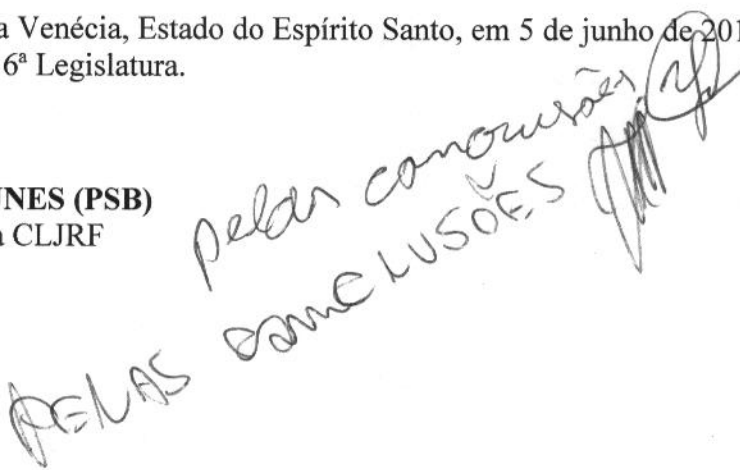 a Venécia, Estado do Espírito Santo, em 5 de junho de 201
6ª Legislatura.
UNES (PSB)
a CLJRF
pelas conclusões
PELAS CONCLUSÕES